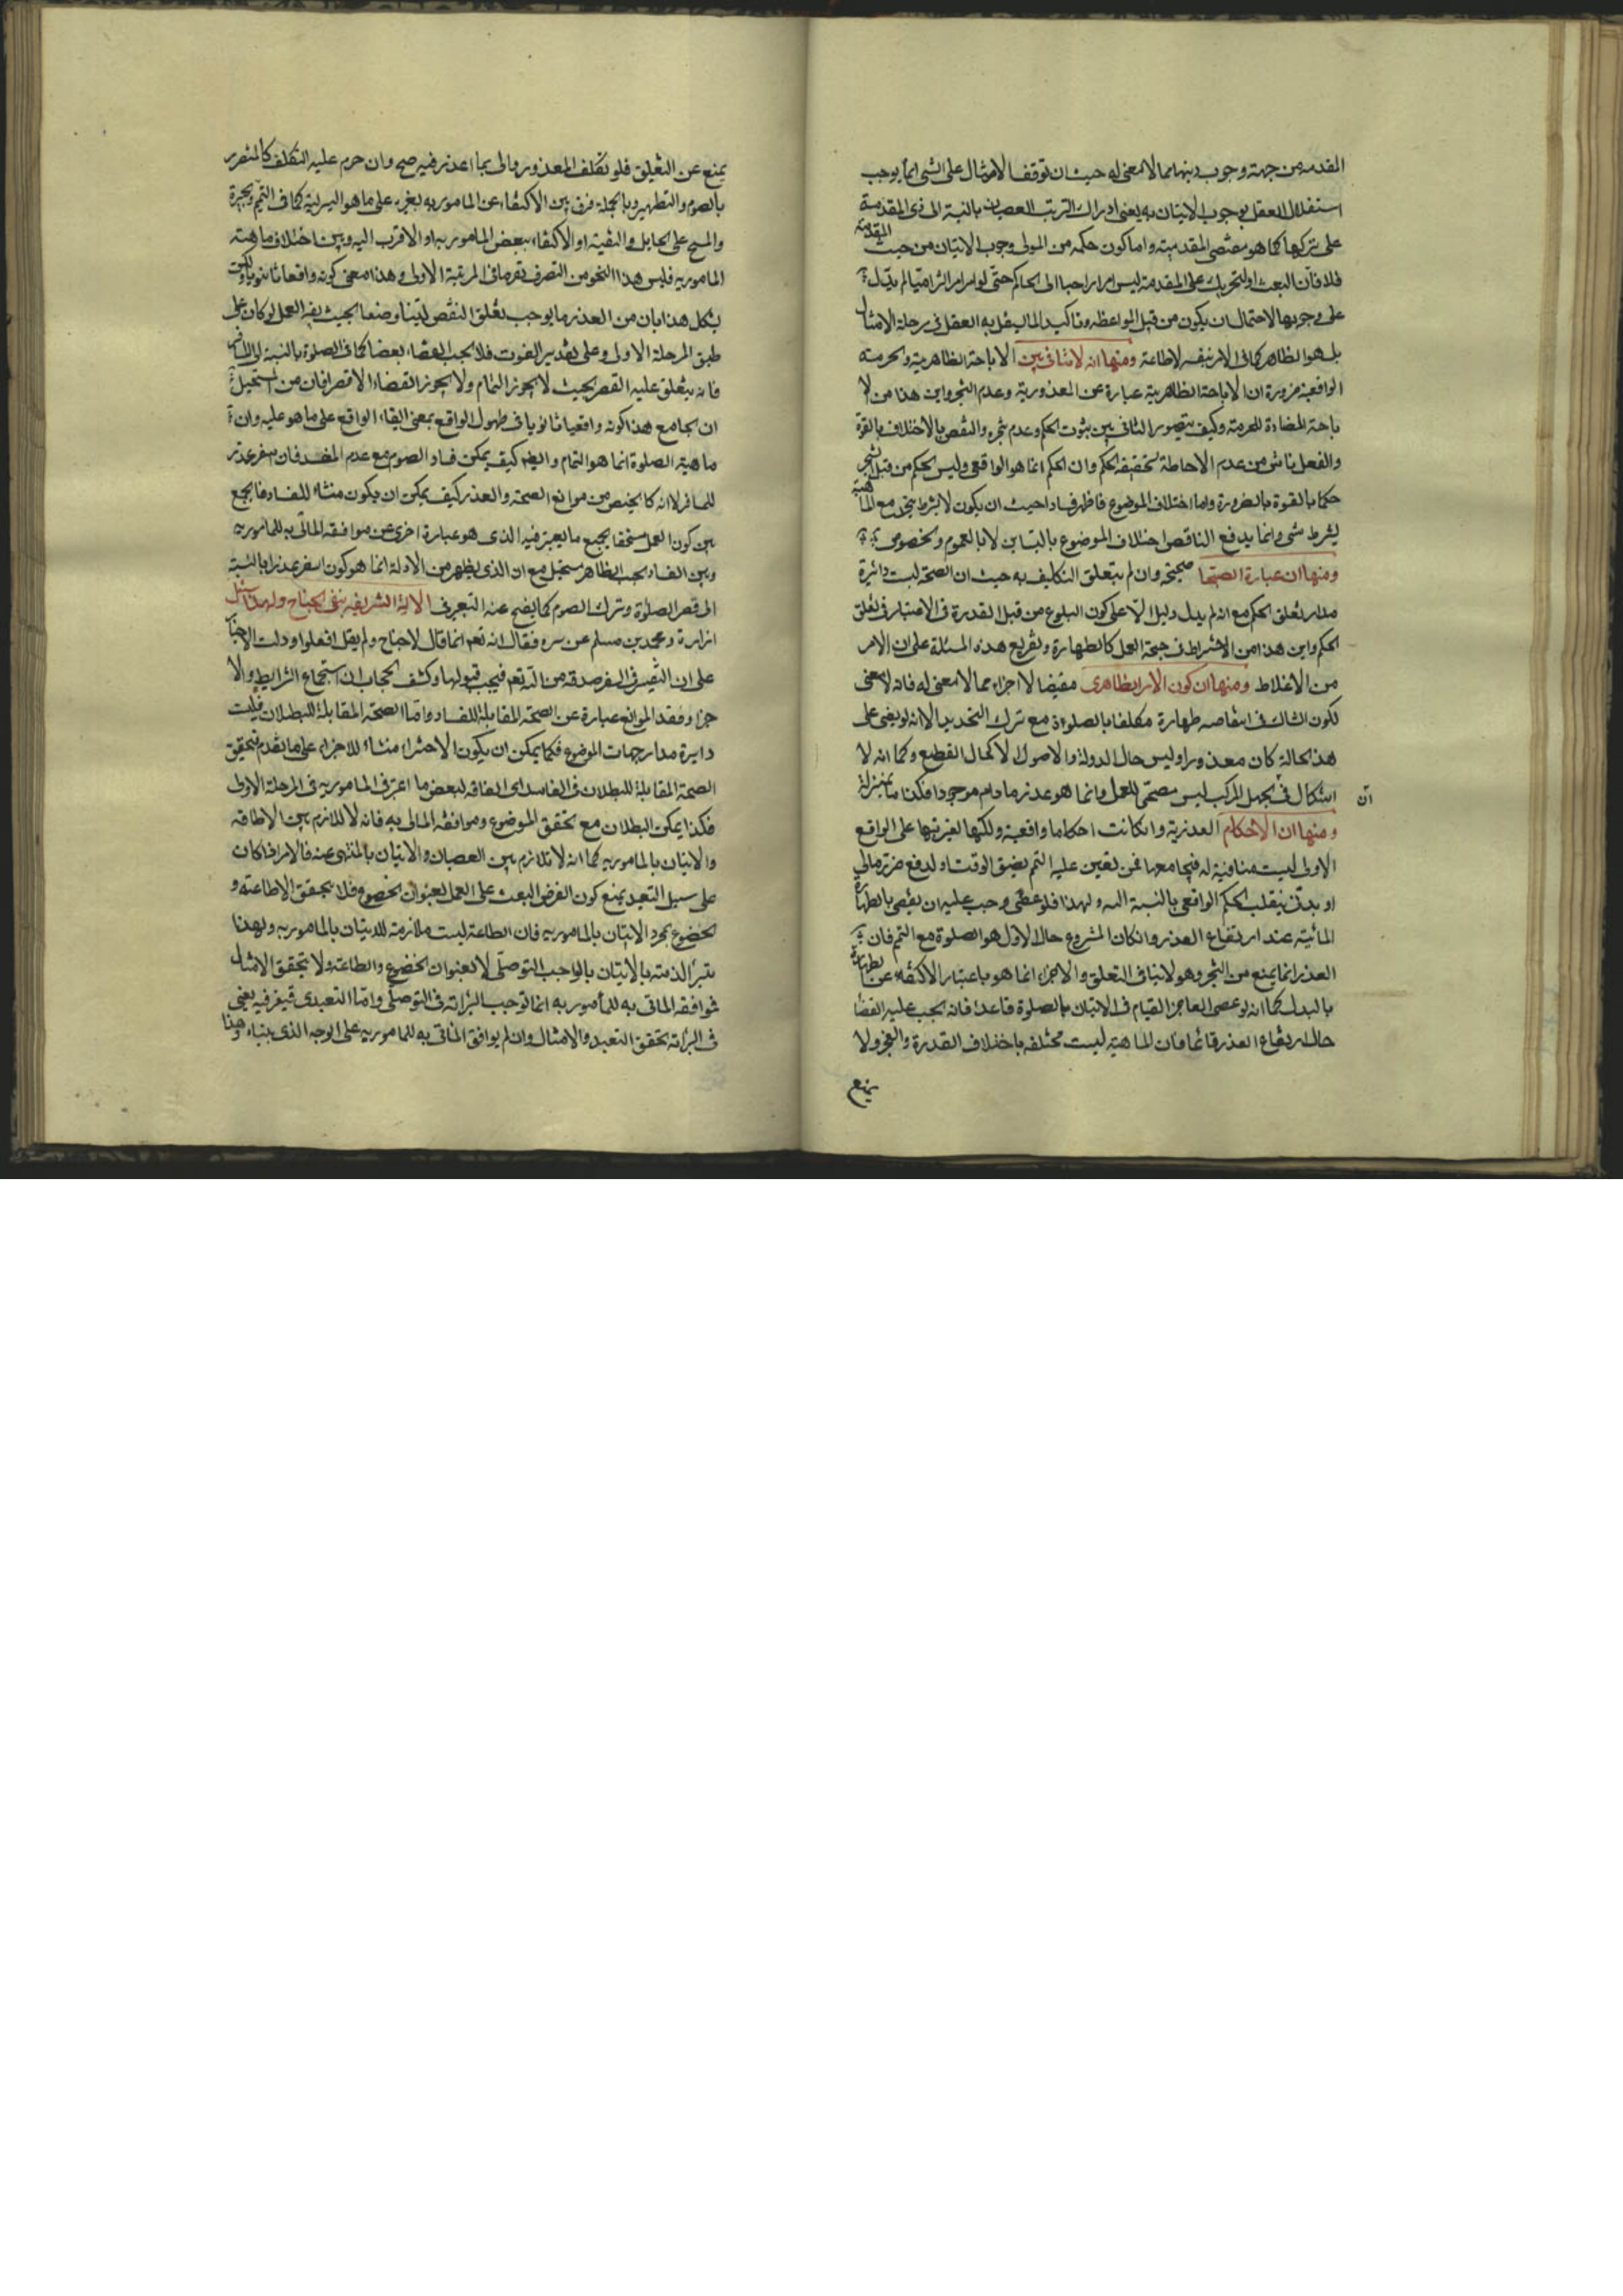 المقدمه من جهة وجوب ذيها مما لا معنى له حيث ان توقف الامتثال على الشئ انما يوجب
استقلال العقل بوجوب الاتيان به يعنى ادراك الترتب العصيان بالنسبة الى ذى المقدمة
على تركها كما هو مقتضى المقدميته واما كون حكمه من المولى وجوب الاتيان من حيث المقدمة
فلا فان البعث او التحريك على المقدمة ليس امرا راجعا الى الحاكم حتى لو امر امرا الزاميا لم يدل
على وجوبها لاحتمال ان يكون من قبل المواعظ وتاكيدا لما يستقل به العقل فى مرحلة الامتثال
بل هو الظاهر كما فى الامر بنفس الاطاعة ومنها انه لا تنافى بين الاباحة الظاهرية والحرمته
الواقعية ضرورة ان الاباحة الظاهرية عبارة عن المعذورية وعدم التنجز واين هذا من الا
باحة المضادة للحرمته وكيف يتصور التنافى بين ثبوت الحكم وعدم تنجزه والنقص بالاختلاف بالقوة
والفعل ناش من عدم الاحاطة بحقيقة الحكم وان الحكم انما هو الواقعى وليس الحكم من قبل التنجز
حكما بالقوة بالضرورة واما اختلاف الموضوع فاظهر فسادا حيث ان يكون لا بشرط يتحد مع الماهية
بشرط شئ وانما يدفع التناقض اختلاف الموضوع بالتباين لا بالعموم والخصوص
ومنها ان عبارة الصبى صحيحة وان لم يتعلق التكليف به حيث ان الصحة ليست دائرة
مدار تعلق الحكم مع انه لم يدل دليل الا على كون البلوغ من قبل القدرة فى الاعتبار فى تعلق
الحكم واين هذا من الاشتراط فى صحة العمل كالطهارة وتفريع هذه المسئلة على ان الامر
من الاغلاط ومنها ان كون الامر الظاهرى مقتضيا للاجزاء مما لا معنى له فانه لا معنى
لكون الشاك فى انتقاضه طهارة مكلفا بالصلوة مع ترك التجديد الا انه لو بقى على
هذه الحالة كان معذورا وليس حال الدولة والاصول الا كحال القطع وكما انه لا
اشكال فى ان الجهل المركب ليس مصححا للعمل وانما هو عذر ما دام موجودا فكذا ما بمنزلة
ومنها ان الاحكام العذرية وان كانت احكاما واقعية ولكنها لغيريتها على الواقع
الاولى ليست منافية له فيجامعها فمن تعين عليه التيمم بضيق الوقت او لدفع ضرر مالى
او بدنى ينقلب الحكم الواقعى بالنسبة اليه ولهذا فلو عصى وجب عليه ان يقضى بالطهارة
المائية عند ارتفاع العذر وان كان المشروع حال الاول هو الصلوة مع التيمم فان
العذر انما يمنع من التنجز وهو لا ينافى التعلق والاجزاء انما هو باعتبار الاكتفاء عن الطهارة
بالبدل كما انه لو عصى العاجز القيام فى الاتيان بالصلوة قاعدا فانه يجب عليه القضا
حال ارتفاع العذر قائما فان الماهية ليست مختلفه باختلاف القدرة والعجز ولا
يمنع
يمنع عن التعليق فلو تكلف المعذور واتى بما اعذر فيه صح وان حرم عليه التكلف كالمتضرر
بالصوم والتطهير وبالجملة فرق بين الاكتفاء عن المامور به بغيره على ما هو البدلية كما فى التيمم والجبيرة
والمسح على الحايل والتقية او الاكتفاء ببعض المامور به او الاقرب اليه وبين اختلاف ماهية
المامور به فليس هذا النحو من التصرف تصرفا فى المرتبة الاولى وهذا معنى كونه واقعا ثانويا
يشكل هذا بان من العذر ما يوجب تعلق النقص وضعا بحيث يفسد العمل لو كان على
طبق المرحلة الاولى وعلى تقدير الفوت فلا يجب القضاء بعضا كما فى الصلوة بالنسبة الى المسافر
فانه يتعلق عليه القصر بحيث لا يجوز التمام ولا يجوز القضاء الا قصرا فان من المستحيل
ان يجامع هذا كونه واقعيا ثانويا فى طول الواقع بمعنى ابقاء الواقع على ما هو عليه وان
ماهية الصلوة انما هو التمام وايضا كيف يمكن فساد الصوم مع عدم المفسد فان سفر عذر
للمسافر لا انه كالحيض من موانع الصحة والعذر كيف يمكن ان يكون منشاء للفساد فالجمع
بين كون العمل مستحقا بجميع ما يعتبر فيه الذى هو عبارة اخرى عن موافقه المأتى به للمامور به
وبين الفساد بحسب الظاهر مستحيل مع ان الذى يظهر من الادلة انما هو كون السفر عذرا بالنسبة
الى قصر الصلوة وترك الصوم كما يفصح عنه التعبير فى الاية الشريفة بنفى الجناح ولهذا سئل
زرارة ومحمد بن مسلم عن سره فقال انه تعم انما قال لا جناح ولم يقل افعلوا ودلت الاخبار
على ان التقصير فى السفر صدقه من الله تعم فيجب قبولها وكشف الحجاب ان استجماع الشرايط والا
جزاء وفقد الموانع عبارة عن الصحة المقابلة للفساد واما الصحة المقابلة للبطلان فليست
دايرة مدار جهات الموضوع فكما يمكن ان يكون الاحترام منشاء للاجزاء على ما تقدم فتحقق
الصحة المقابلة للبطلان فى الفاسد اى الفاقد لبعض ما اعتبر فى المامور به فى المرحلة الاولى
فكذا يمكن البطلان مع تحقق الموضوع وموافقة المأتى به فانه لا تلازم بين الاطاعة
والاتيان بالمامور به كما انه لا تلازم بين العصيان والاتيان بالمنهى عنه فالامر اذا كان
على سبيل التعبد يمنع كون الغرض البعث على العمل بعنوان الخضوع فلا يتحقق الاطاعة و
الخضوع بمجرد الاتيان بالمامور به فان الطاعة ليست ملازمة للاتيان بالمامور به ولهذا
يتبرأ الذمته بالاتيان بالواجب التوصلى لا بعنوان الخضوع والطاعة ولا يتحقق الامتثال
فموافقة الماتى به للمأمور به انما توجب البرائة فى التوصلى واما التعبدى فيعتبر فيه يعنى
فى البرائة تحقق التعبد والامتثال وان لم يوافق الماتى به للمامور به على الوجه الذى بيناه وهذا